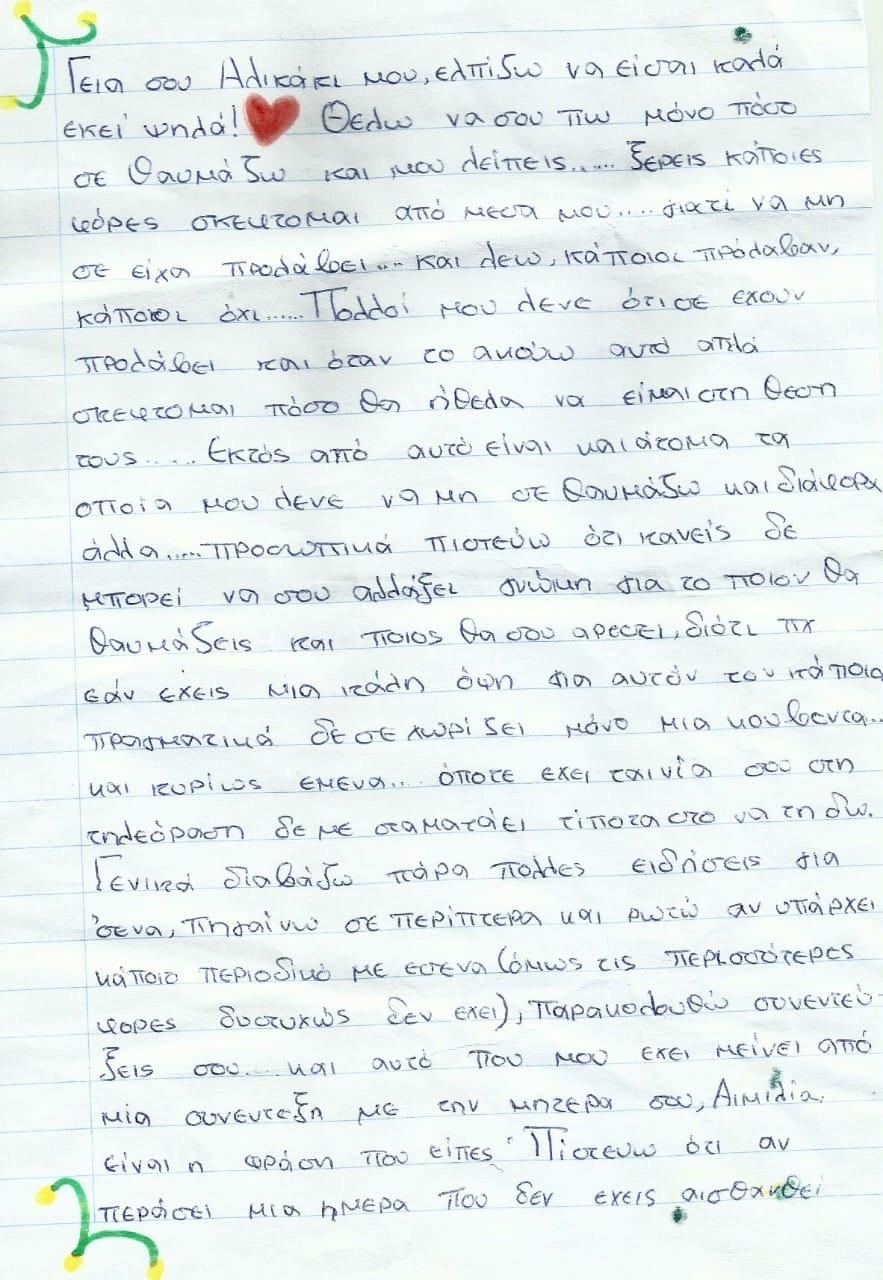 Γεια σου Αλικάκι μου, ελπίζω να είσαι καλά
εκεί ψηλά! Θελω να σου πω μόνο πόσο
σε θαυμάζω και μου λείπεις..... ξερεις κάποιες
φόρες σκεφτομαι από μεσα μου.... γιατί να μη
σε είχα προλάβει... και λεω, κάποιοι πρόλαβαν,
κάποιοι όχι..... Πολλοί μου λενε ότι σε εχουν
προλάβει και όταν το ακούω αυτό απλά
σκεφτομαι πόσο θα ήθελα να είμαι στη θεση
τους..... Εκτός από αυτό είναι και άτομα τα
οποία μου λενε να μη σε θαυμάζω και διάφορα
άλλα..... προσωπικά πιστεύω ότι κανείς δε
μπορεί να σου αλλάξει γνώμη για το ποιον θα
θαυμάζεις και ποιος θα σου αρεσει, διότι πχ
εάν εχεις μια κάλη όψη για αυτόν τον κάποιο
πραγματικά δε σε χωρίζει μόνο μια κουβεντα...
και κυρίως εμενα... όποτε εχει ταινία σου στη
τηλεόραση δε με σταματάει τίποτα στο να τη δω.
Γενικά διαβάζω πάρα πολλες ειδήσεις για
σενα, πηγαίνω σε περίπτερα και ρωτώ αν υπάρχει
κάποιο περιοδικό με εσενα (όμως τις περισσότερες
φορες δυστυχώς δεν εχει), παρακολουθώ συνεντεύ-
ξεις σου.... και αυτό που μου εχει μείνει από
μία συνεντεξη με την μητερα σου, Αιμιλία.
είναι η φράση που είπες "Πίστευω ότι αν
περάσει μια ημερα που δεν εχεις αισθανθεί